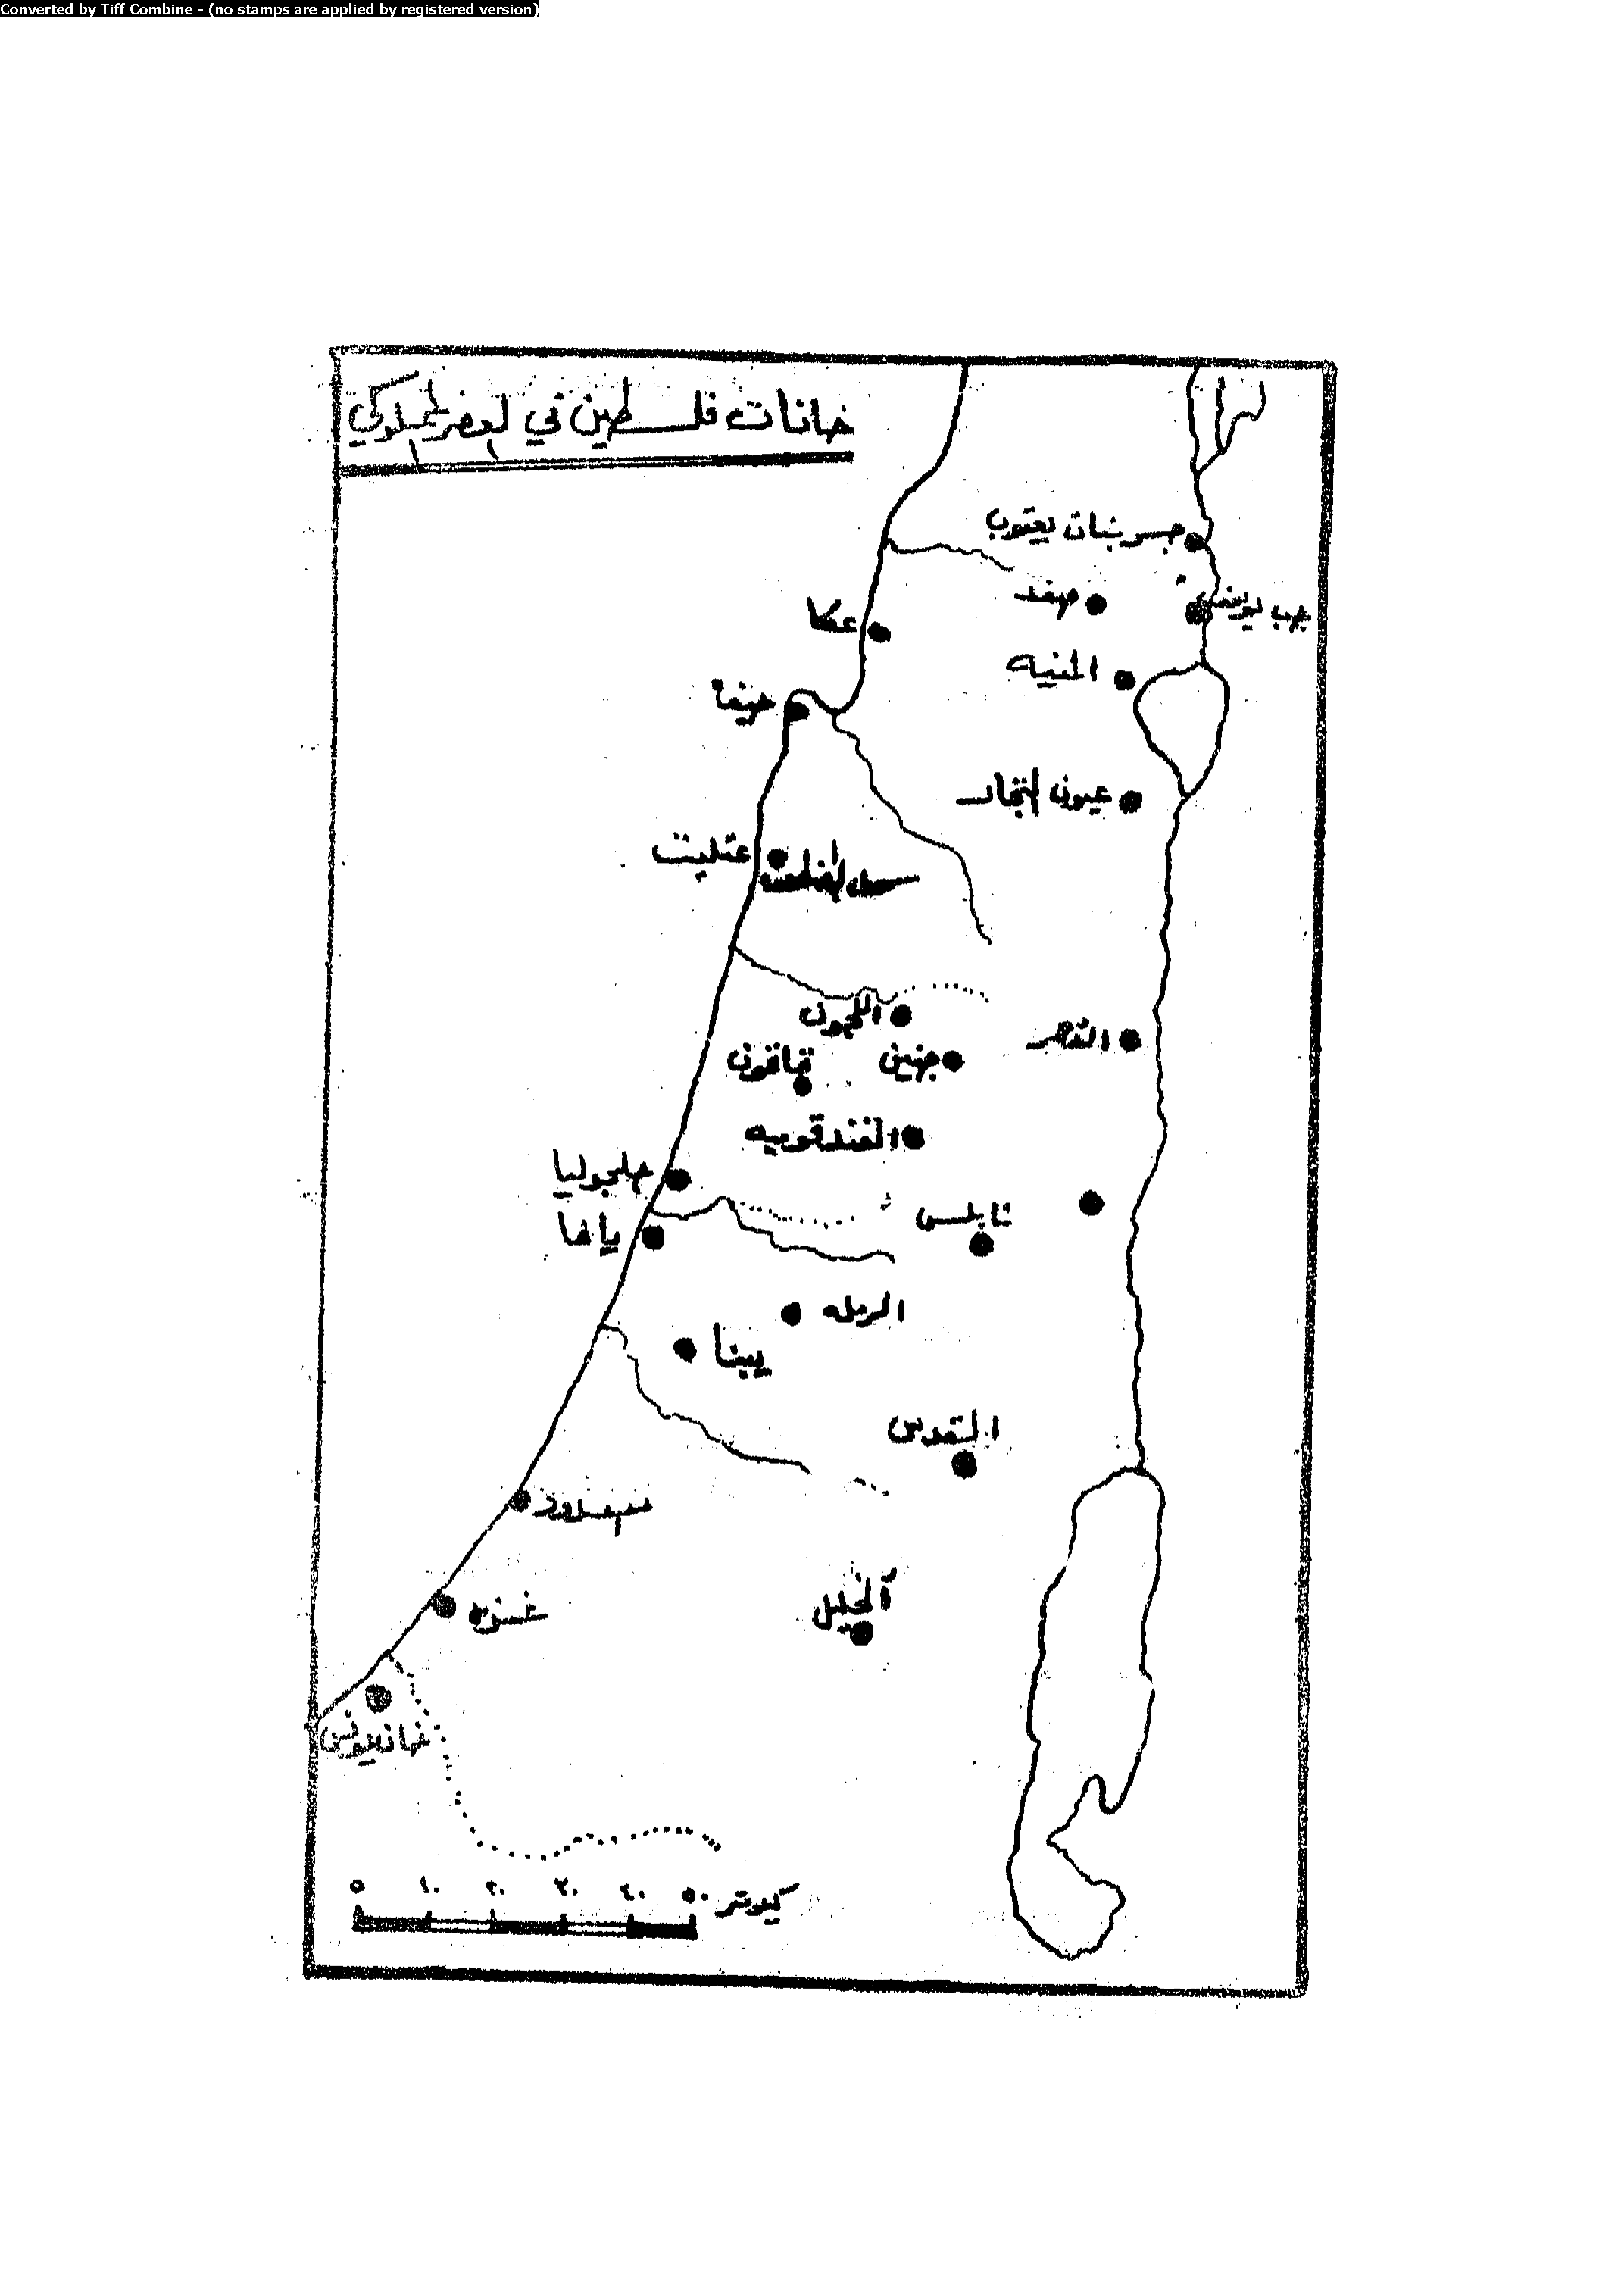 Converted by Tiff Combine - (no stamps are applied by registered version)
خانات فلسطين في العصر المملوكي
جسر بنات يعقوب
صفد
جب يوسف
عكا
المنيه
حيفا
عيون التجار
عتليت
اللجون
جنين
قاقون
الفندقوميه
جلجوليا
نابلس
يافا
الرمله
يبنا
القدس
سدود
غزه
الخليل
خانيونس
٥ ١٠ ٢٠ ٣٠ ٤٠ ٥٠ كيلومتر